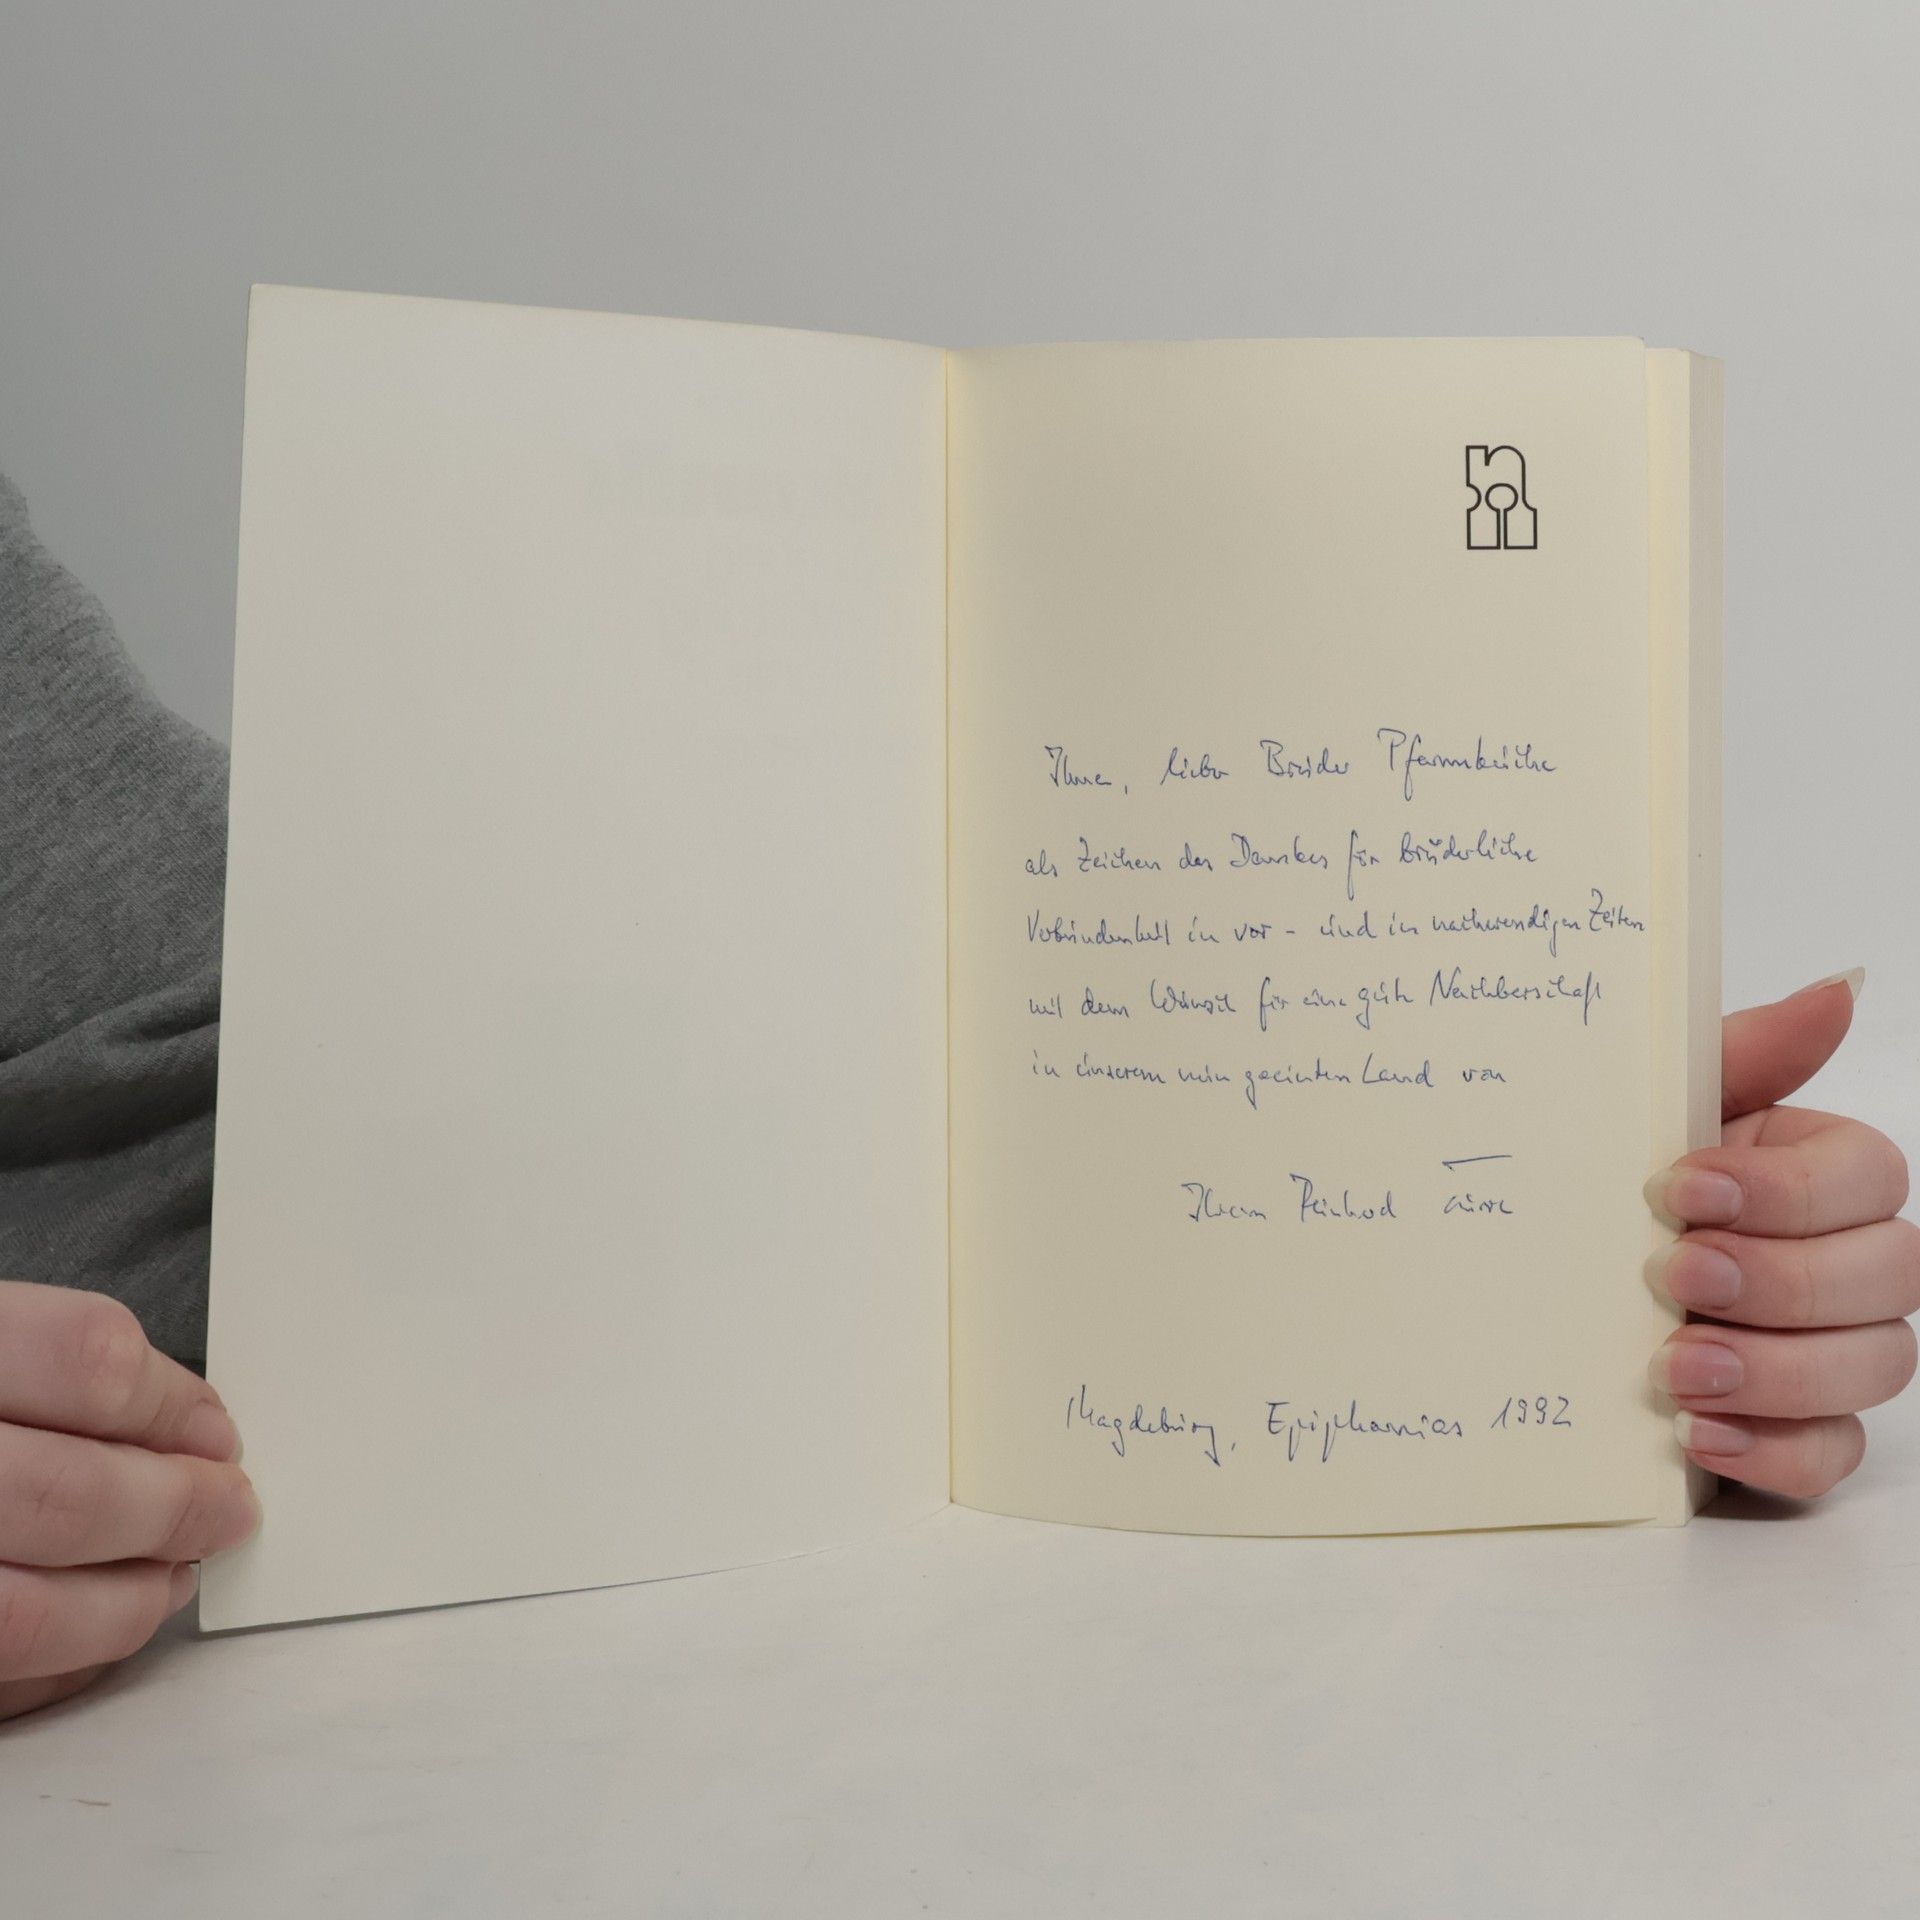 Ihnen, lieber Bruder Pfannkuche
als Zeichen des Dankes für brüderliche
Verbundenheit in vor- und in nachwendigen Zeiten
mit dem Wunsch für eine gute Nachbarschaft
in unserem nun geeinten Land von
Ihrem Reinhard
Magdeburg, Epiphanias 1992